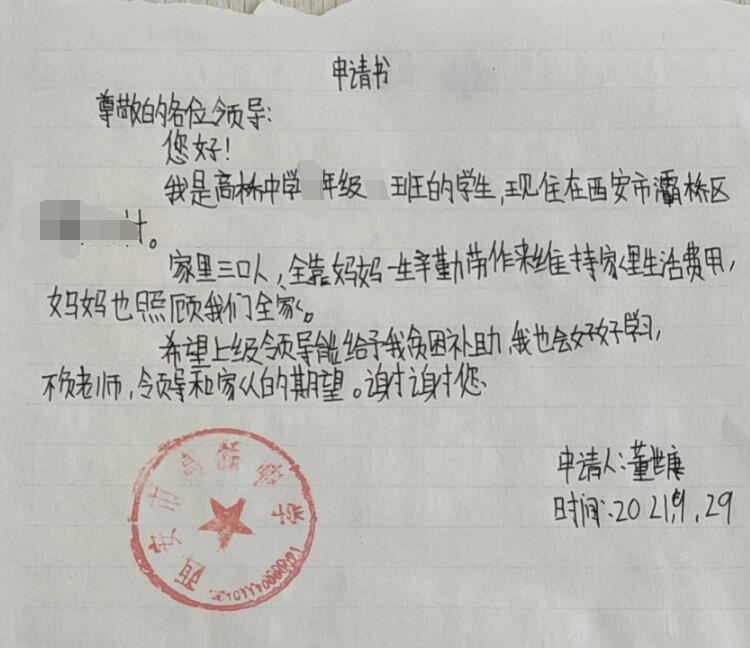 申请书
尊敬的各位领导:
您好!
我是高桥中学 年级 班的学生,现住在西安市灞桥区
。
家里三口人,全靠妈妈一生辛勤劳作来维持家里生活费用,
妈妈也照顾我们全家。
希望上级领导能给予我贫困补助,我也会好好学习,
不负老师,领导和家人的期望。谢谢您.
申请人:董世康
时间:2021.9.29
西安市高桥中学